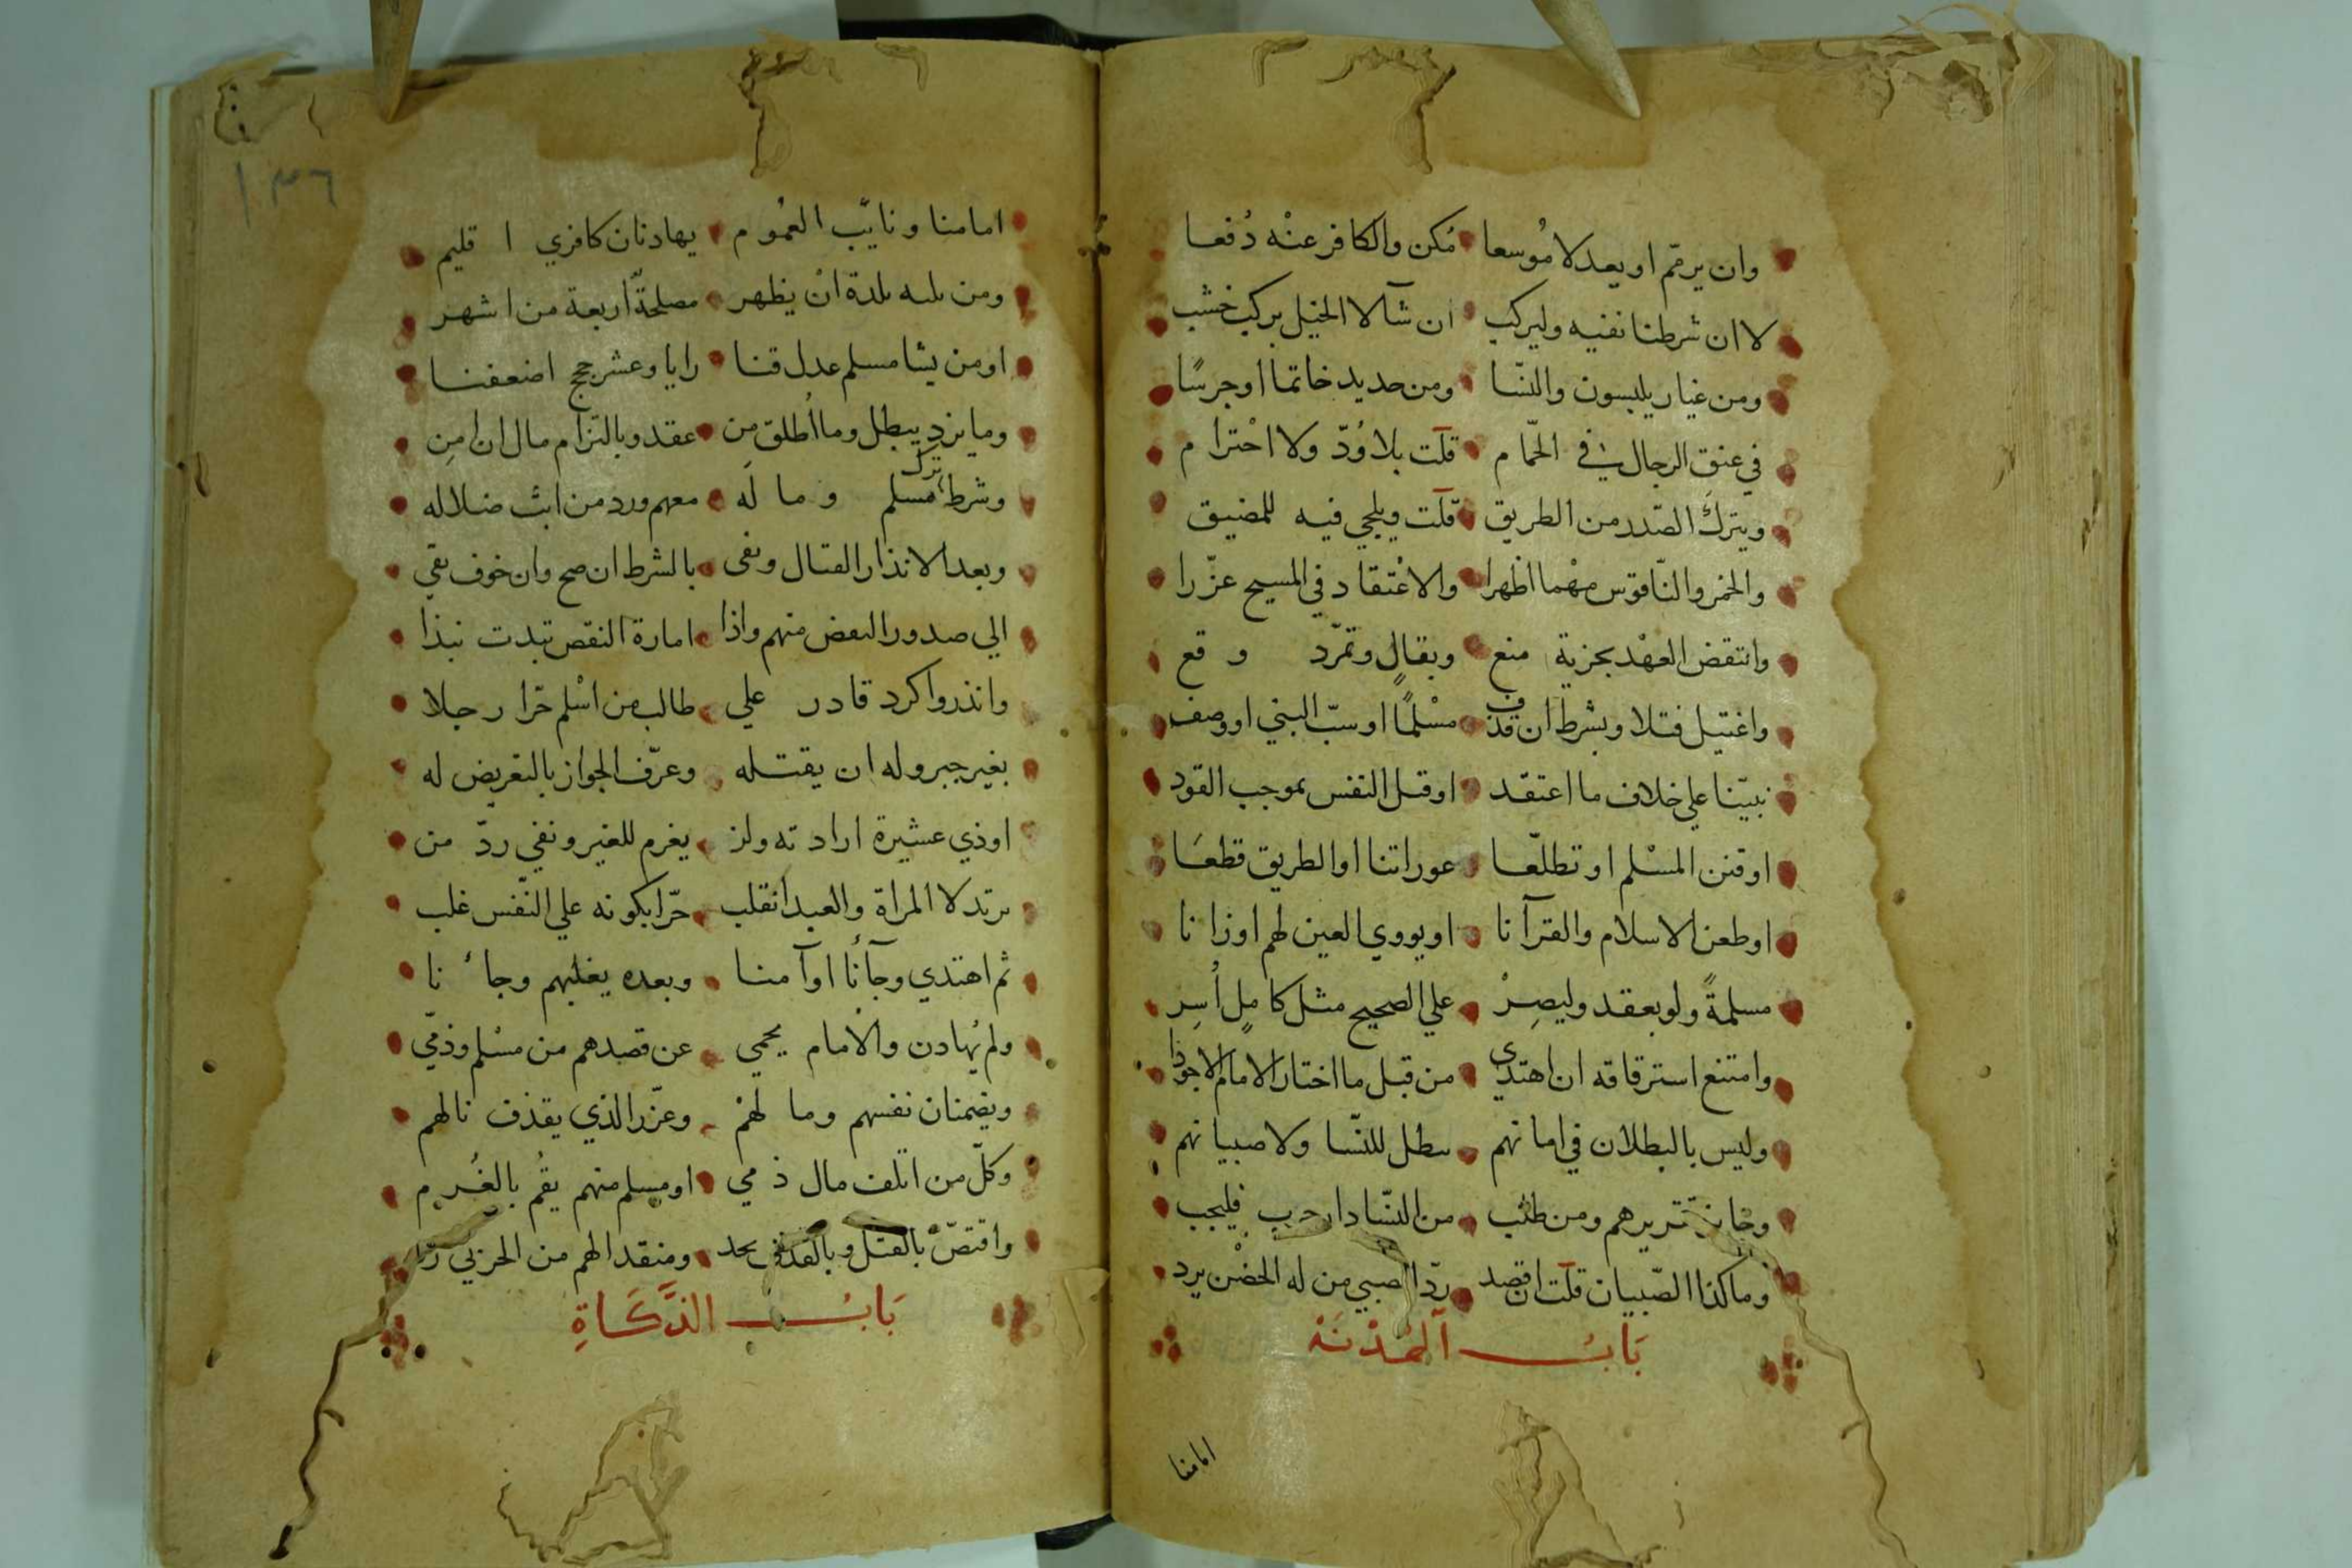 وان يرمّم او يعد لا مُوسعا مُكن والكافر عنْه دُفعا
لا ان شرطنا نفيه وليركب ان شآ لا الخيل بركب خشب
ومن غيار يلبسون والنّسا ومن حديد خاتما او جرسًا
في عنق الرجال في الحّمام قلت بلا وُدّ ولا احْترام
ويترك الصّدر من الطريق قلت ويلجي فيه للمضيق
والخمر والنّاقوس مهْما اظهرا والاعْتقاد في المسيح عزّرا
وانتقض العهْد بجزية منع وبقتالٍ وتمرّد وقع
واغتيل قتلا وبشرط ان قذف مسْلمًا او سبّ النبي او وصف
نبيّنا علي خلاف ما اعتقد او قتل النفس بموجب القود
او فتن المسْلم او تطلّعا عوراتنا او الطريق قطعَا
او طعن الاسلام والقرآنا او يووي العين لهم او زانا
مسلمةً ولو بعقد وليصِرْ علي الصحيح مثل كاملٍ أُسِر
وامتنع استرقاقه ان اهتدي من قبل ما اختار الامام الاجودا
وليس بالبطلان في امانهم يبطل للنّسا ولا صبيانهم
وجاز تقريرهم ومن طلب من النّسا دار حرب فليجب
وما كذا الصّبيان قلت ان قصد ردّ الصبي من له الحضْن يرد
بَابُ الهُدْنَة
امامنا
١٣٦
امامنا ونايّب العُموم يهادنان كافري اقليم
ومن يليه بلدة انْ يظهر مصلحةً اربعة من اشهر
او من يشا مسلم عدل قنا رايا وعشر حجج اضعفنا
وما يزد يبطل وما أُطلق مِن عقد وبالتزام مال ان امِن
وشرط ترك مسلم وما لَه معهم ورد من ابث ضلاله
وبعد الانذار القتال ونفى بالشرط ان صح وان خوف بقي
الي صدور البعض منهم واذا امارة النقص تبدت نبذا
وانذروا كرد قادر علي طالب من اسْلم حّرا رجلا
بغير جبر وله ان يقتله وعرّف الجواز بالتعريض له
او ذي عشيرة ارادته ولز يغرم للغير ونفي ردّ من
يرتد لا المراة والعبد انقلب حّرا بكونه علي النّفس غلب
ثم اهتدي وجآنا او آمنا وبعده يغلبهم وجاءنا
ولم يُهادن والامام يحمي عن قصدهم من مسْلم وذمّي
ويضمنان نفسهم وما لهمْ وعزّر الذي يقذف نالهم
وكلّ من اتلف مال ذمي او مسلم منهم يقُم بالغُرم
واقتصّ بالقتل وبالقذف يحد ومنقد الهم من الحربي
بَابُ الذَّكَاةِ